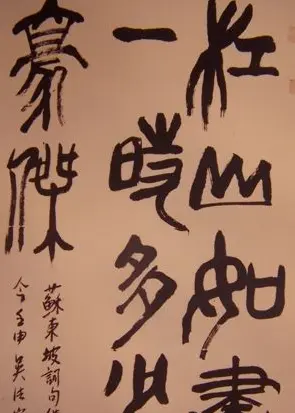 江山如畫
一時多少
豪傑
蘇東坡詞句
壬申吳